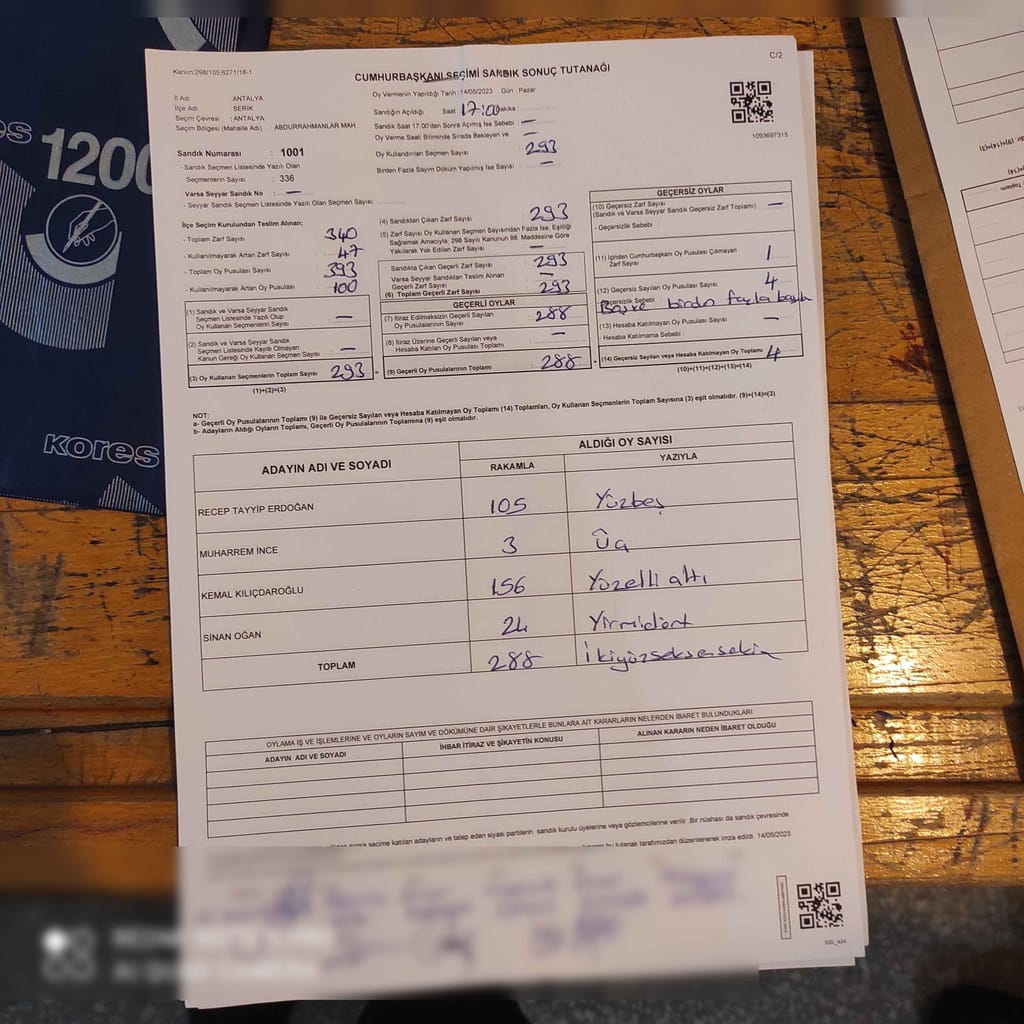 Kanun:298/105;6271/18-1
C/2
CUMHURBAŞKANI SEÇİMİ SANDIK SONUÇ TUTANAĞI
İl Adı : ANTALYA
İlçe Adı : SERİK
Seçim Çevresi : ANTALYA
Seçim Bölgesi (Mahalle Adı) : ABDURRAHMANLAR MAH.
Oy Vermenin Yapıldığı Tarih : 14/05/2023 Gün : Pazar
Sandığın Açıldığı Saat 17:00 Dakika :
Sandık Saat 17:00'den Sonra Açılmış İse Sebebi : —
Oy Verme Saati Bitiminde Sırada Bekleyen ve —
Oy Kullandırılan Seçmen Sayısı : 293
Birden Fazla Sayım Döküm Yapılmış İse Sayısı : —
1093697315
Sandık Numarası : 1001
- Sandık Seçmen Listesinde Yazılı Olan
Seçmenlerin Sayısı : 336
Varsa Seyyar Sandık No : —
- Seyyar Sandık Seçmen Listesinde Yazılı Olan Seçmen Sayısı:
İlçe Seçim Kurulundan Teslim Alınan;
- Toplam Zarf Sayısı : 340
- Kullanılmayarak Artan Zarf Sayısı : 47
- Toplam Oy Pusulası Sayısı : 393
- Kullanılmayarak Artan Oy Pusulası : 100
(1) Sandık ve Varsa Seyyar Sandık
Seçmen Listesinde Yazılı Olup
Oy Kullanan Seçmenlerin Sayısı : —
(2) Sandık ve Varsa Seyyar Sandık
Seçmen Listesinde Kayıtlı Olmayan
Kanun Gereği Oy Kullanan Seçmen Sayısı : —
(3) Oy Kullanan Seçmenlerin Toplam Sayısı : 293
(1)+(2)=(3)
(4) Sandıktan Çıkan Zarf Sayısı : 293
(5) Zarf Sayısı Oy Kullanan Seçmen Sayısından Fazla İse, Eşitliği
Sağlamak Amacıyla, 298 Sayılı Kanunun 98. Maddesine Göre
Yakılarak Yok Edilen Zarf Sayısı : —
Sandıkta Çıkan Geçerli Zarf Sayısı : 293
Varsa Seyyar Sandıktan Teslim Alınan
Geçerli Zarf Sayısı : —
(6) Toplam Geçerli Zarf Sayısı : 293
GEÇERLİ OYLAR
(7) İtiraz Edilmeksizin Geçerli Sayılan
Oy Pusulalarının Sayısı : 288
(8) İtiraz Üzerine Geçerli Sayılan veya
Hesaba Katılan Oy Pusulası Toplamı : —
(9) Geçerli Oy Pusulalarının Toplamı : 288
GEÇERSİZ OYLAR
(10) Geçersiz Zarf Sayısı : —
(Sandık ve Varsa Seyyar Sandık Geçersiz Zarf Toplamı)
- Geçersizlik Sebebi :
(11) İçinden Cumhurbaşkanı Oy Pusulası Çıkmayan
Zarf Sayısı : 1
(12) Geçersiz Sayılan Oy Pusulası Sayısı : 4
Geçersizlik Sebebi : birden fazla
(13) Hesaba Katılmayan Oy Pusulası Sayısı : —
Hesaba Katılmama Sebebi :
(14) Geçersiz Sayılan veya Hesaba Katılmayan Oy Toplamı : 4
(10)+(11)+(12)+(13)=(14)
NOT:
a- Geçerli Oy Pusulalarının Toplamı (9) ile Geçersiz Sayılan veya Hesaba Katılmayan Oy Toplamı (14) Toplamları, Oy Kullanan Seçmenlerin Toplam Sayısına (3) eşit olmalıdır. (9)+(14)=(3)
b- Adayların Aldığı Oyların Toplamı, Geçerli Oy Pusulalarının Toplamına (9) eşit olmalıdır.
ADAYIN ADI VE SOYADI
ALDIĞI OY SAYISI
RAKAMLA YAZIYLA
RECEP TAYYİP ERDOĞAN 105 Yüzbeş
MUHARREM İNCE 3 Üç
KEMAL KILIÇDAROĞLU 156 Yüzelli altı
SİNAN OĞAN 24 Yirmidört
TOPLAM 288 İkiyüzseksensekiz
OYLAMA İŞ VE İŞLEMLERİNE VE OYLARIN SAYIM VE DÖKÜMÜNE DAİR ŞİKAYETLERLE BUNLARA AİT KARARLARIN NELERDEN İBARET BULUNDUKLARI
ADAYIN ADI VE SOYADI İHBAR İTİRAZ VE ŞİKAYETİN KONUSU ALINAN KARARIN NEDEN İBARET OLDUĞU
sonra seçime katılan adayların ve talep eden siyasi partilerin sandık kurulu üyelerine veya gözlemcilerine verilir. Bir nüshası da sandık çevresinde
bu tutanak tarafımızdan düzenlenerek imza edildi. 14/05/2023
1200
kores